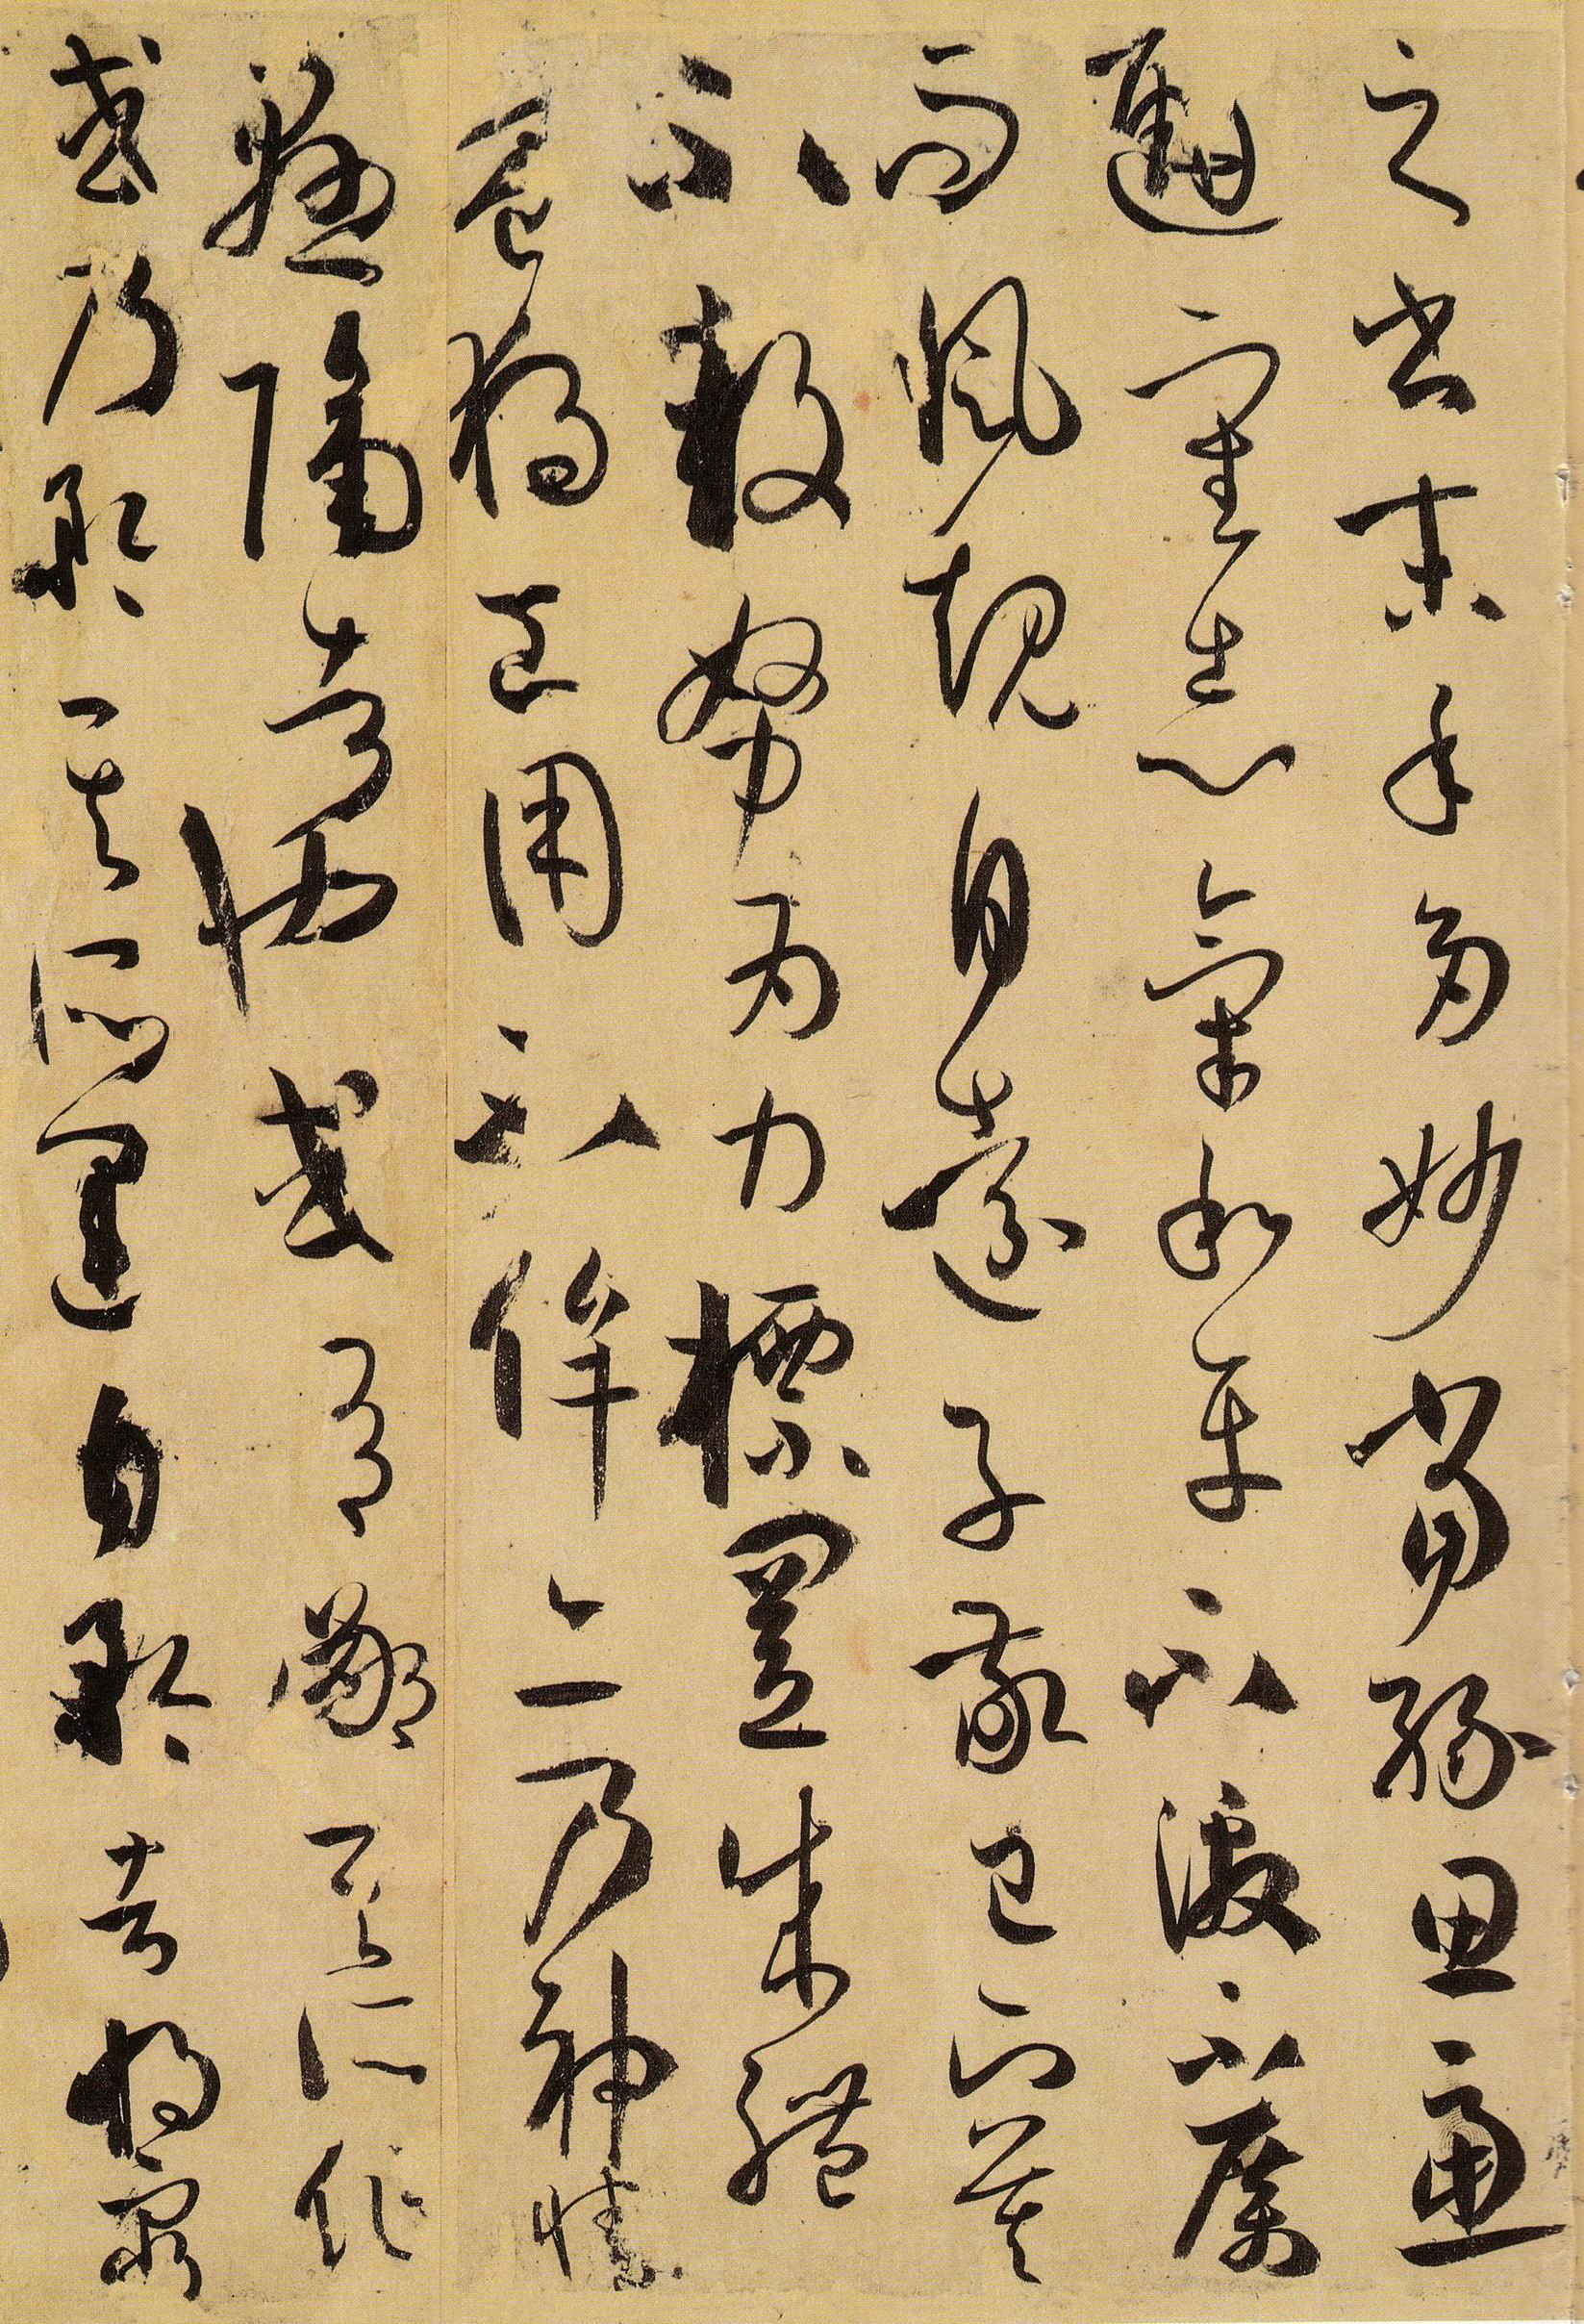 之書末年多妙當緣思慮
通審志氣和平不激不厲
而風規自遠子敬已下莫
不鼓努為力標置成體
豈獨工用不侔亦乃神情
懸隔者也或有鄙其所作
或乃矜其所運自矜者將窮